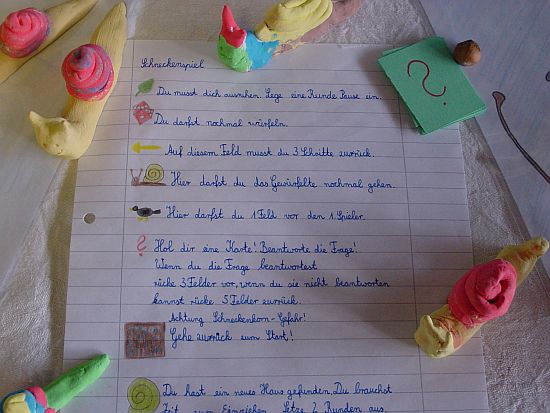 Schneckenspiel
Du musst dich ausruhen. Lege eine Runde Pause ein.
Du darfst nochmal würfeln.
Auf diesem Feld musst du 3 Schritte zurück.
Hier darfst du das Gewürfelte nochmal gehen.
Hier darfst du 1 Feld vor den 1. Spieler.
? Hol dir eine Karte! Beantworte die Frage!
Wenn du die Frage beantwortest
rücke 3 Felder vor, wenn du sie nicht beantworten
kannst rücke 5 Felder zurück.
Achtung Schneckenkorn-Gefahr!
Gehe zurück zum Start!
Du hast ein neues Haus gefunden. Du brauchst
Zeit zum Einziehen. Setze 2 Runden aus.
?